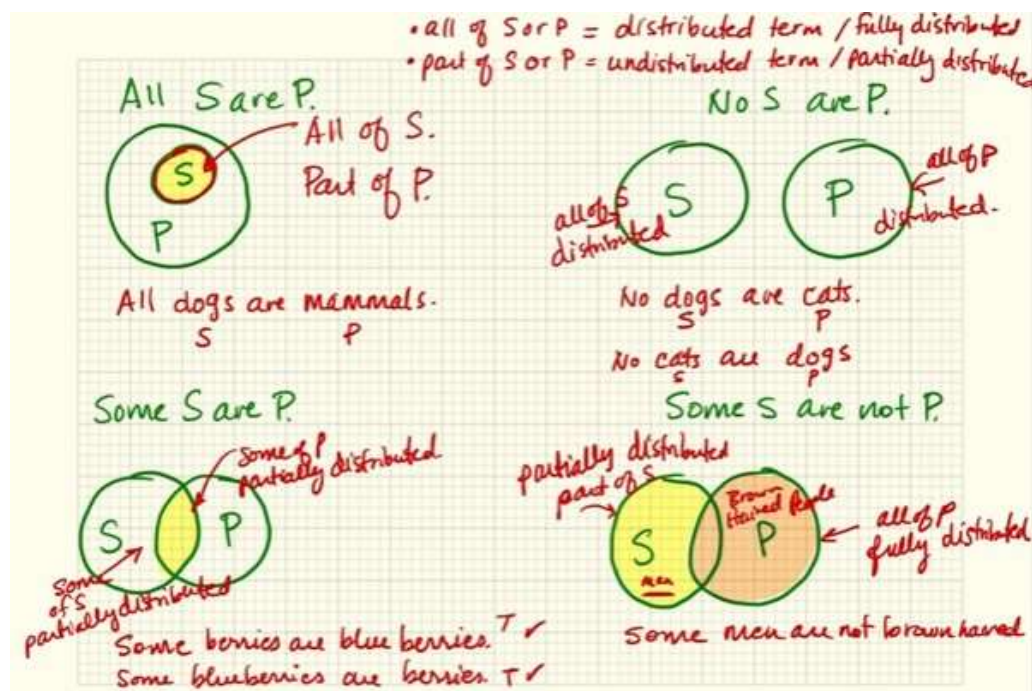 • all of S or P = distributed term / fully distributed
• part of S or P = undistributed term / partially distributed
All S are P.
All of S.
Part of P.
S
P
All dogs are mammals.
S P
No S are P.
all of S
distributed
S
P
all of P
distributed.
No dogs are cats.
S P
No cats are dogs
S P
Some S are P.
some of P
partially distributed
S
P
some
of S
partially distributed
Some berries are blueberries. T ✓
Some blueberries are berries. T ✓
Some S are not P.
partially distributed
part of S
S
men
Brown
Haired People
P
all of P
fully distributed
Some men are not brown haired